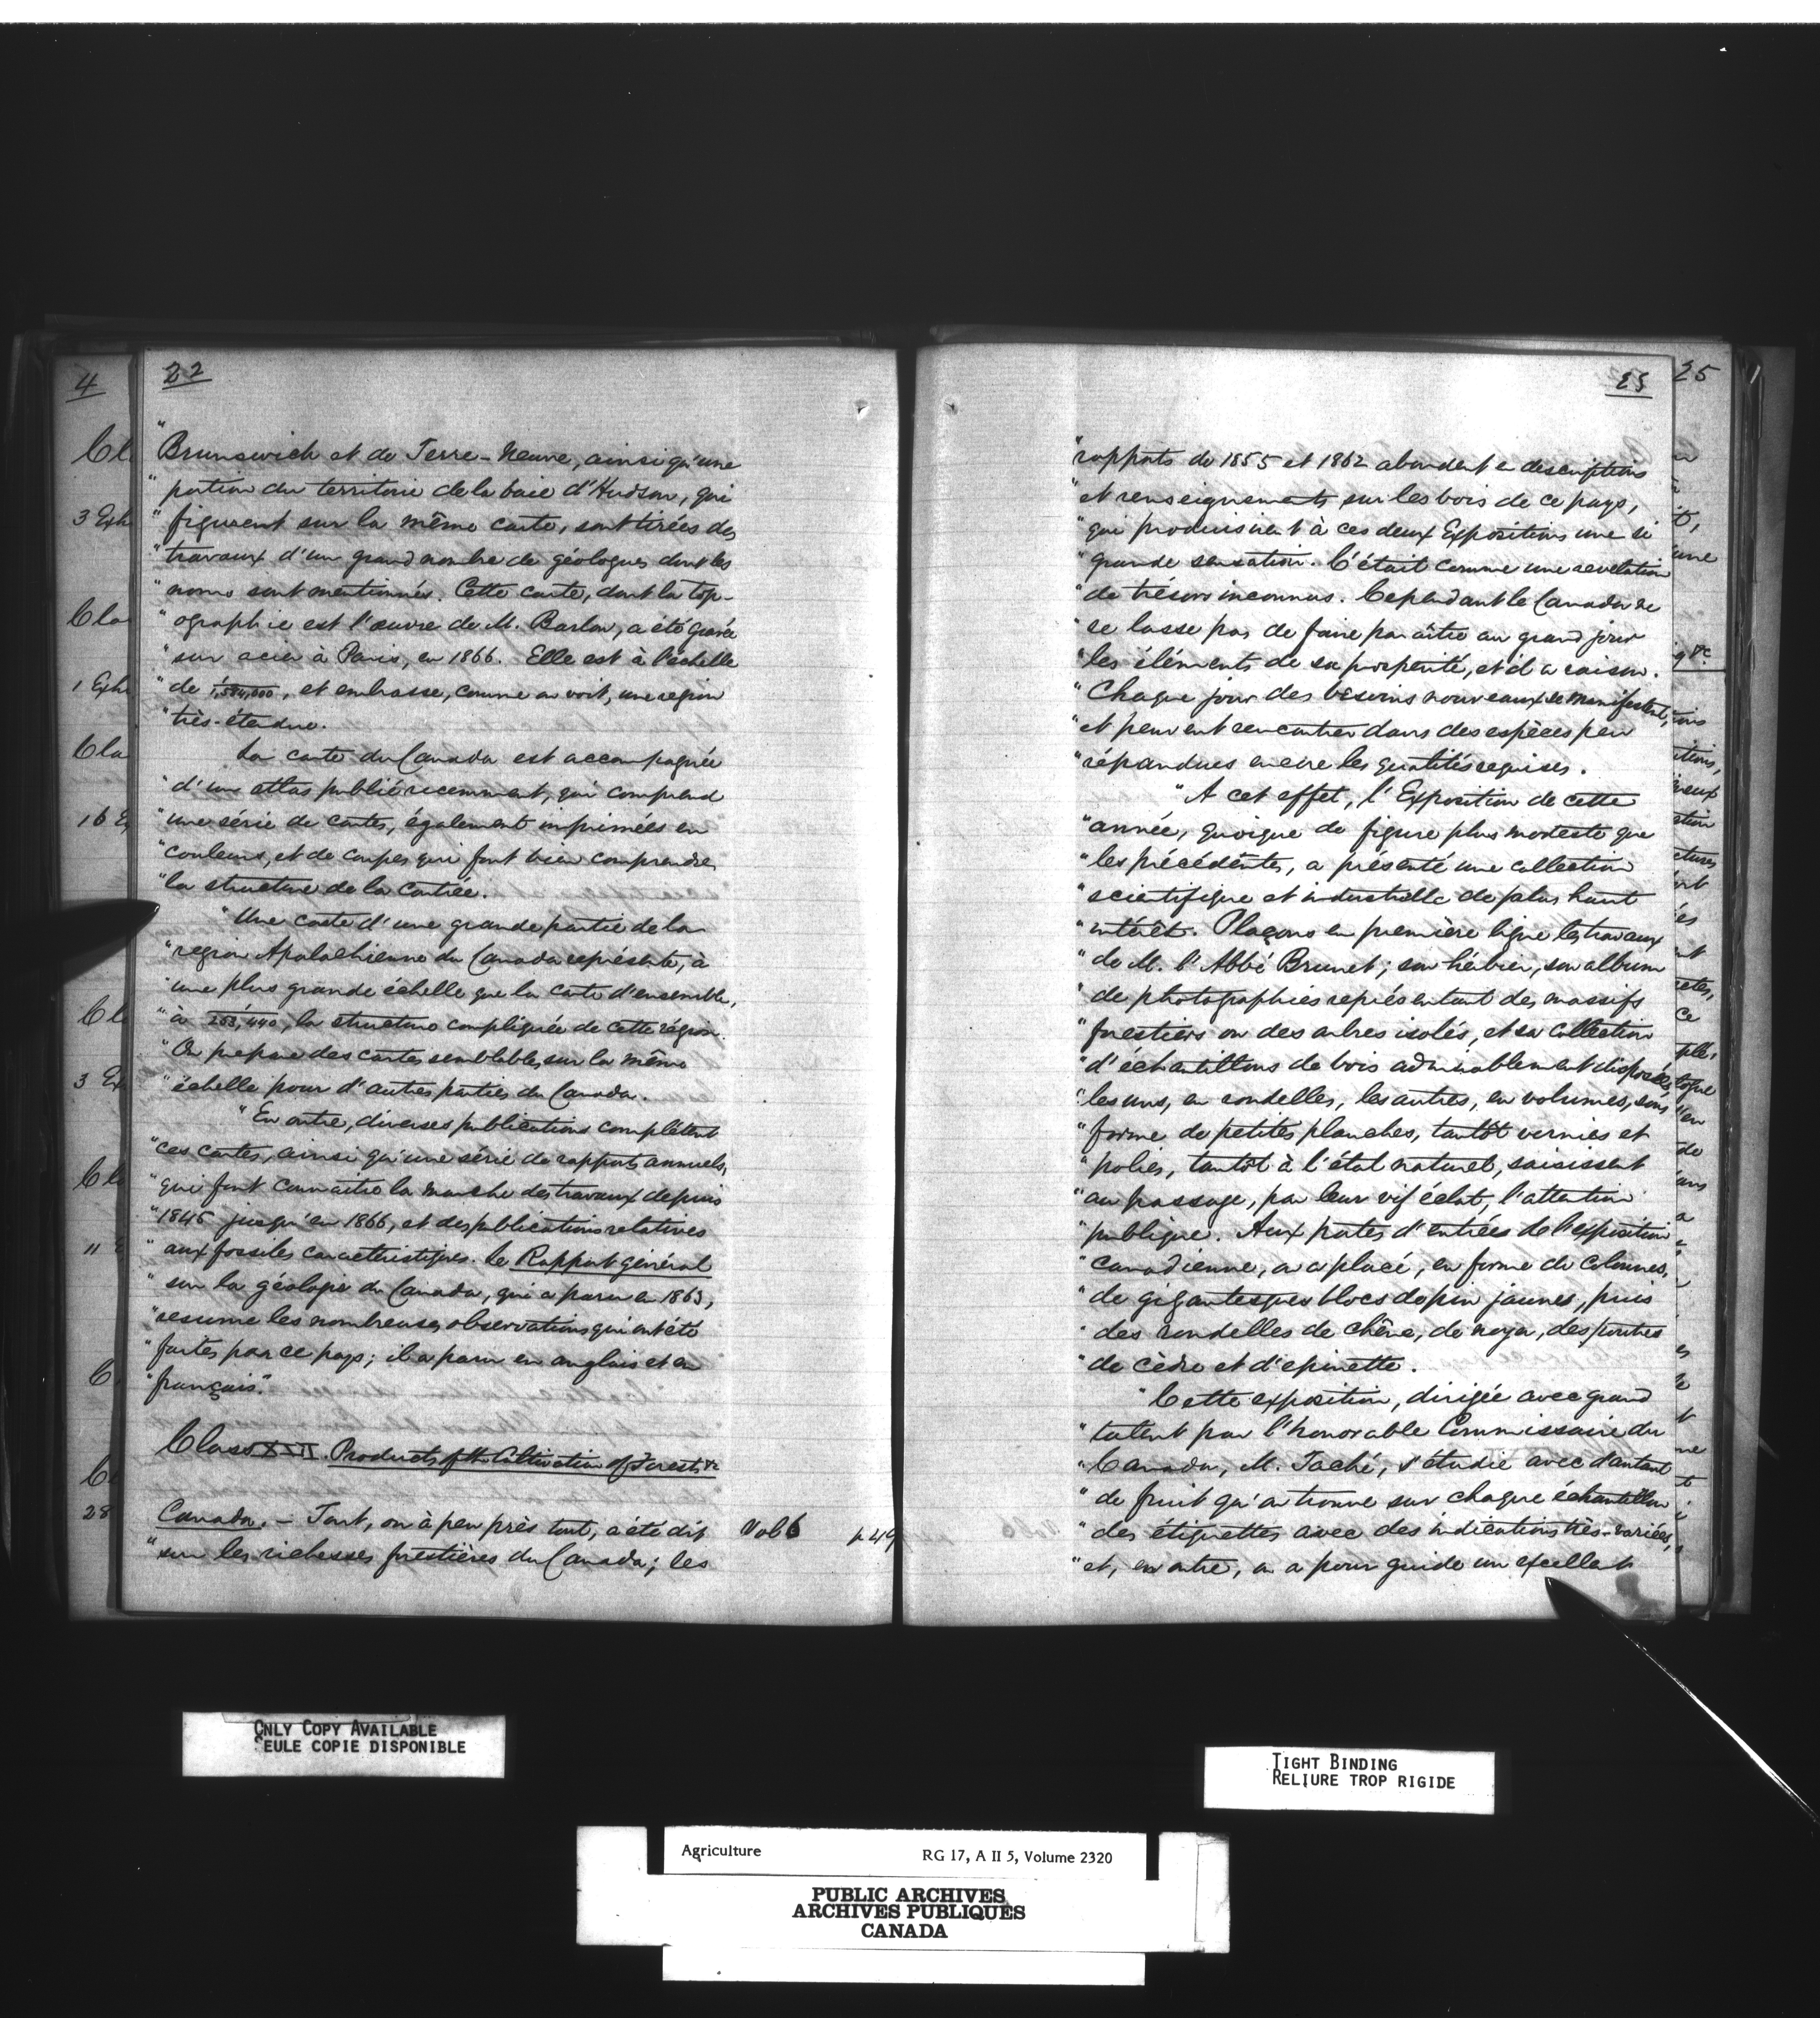 22
"Brunswich et de Terre-Neuve, ainsi qu'une
"portion du territoire de la baie d'Hudson, qui
"figurent sur la même carte, sont tirées des
"travaux d'un grand nombre de géologues dont les
"noms sont mentionnés. Cette carte, dont la top-
"ographie est l'œuvre de M. Barlow, a été gravée
"sur acier à Paris, en 1866. Elle est à l'échelle
"de 1/1,584,000, et embrasse, comme on voit, une region
"très-étendue.
La carte du Canada est accompagnée
"d'un atlas publié recemment, qui comprend
"une série de cartes, également imprimées en
"couleurs, et de coupes qui font bien comprendre
"la structure de la contrée.
"Une carte d'une grande partie de la
"region Apalachienne du Canada représente, à
"une plus grande échelle que la carte d'ensemble,
"à 1/253,440, la structure compliquée de cette région.
"On prepare des cartes semblables sur la même
"échelle pour d'autres parties du Canada.
"En outre, diverses publications complètent
"ces cartes, ainsi qu'une série de rapports annuels,
"qui font connaitre la marche des travaux depuis
"1845 jusqu'en 1866, et des publications relatives
"aux fossiles caractéristiques. Le Rapport général
"sur la géologie du Canada, qui a paru en 1863,
"resume les nombreuses observations qui ont été
"faites par ce pays; il a paru en anglais et en
"français."
Class XLII. Products of the Cultivation of Forests &c
Canada. – Tout, ou à peu près tout, a été dit Vol 6 p 49
"sur les richesses forestières du Canada; les
23
"rapports de 1855 et 1862 abondent en descriptions
"et renseignements sur les bois de ce pays,
"qui produisirent à ces deux Expositions une si
"grande sensation. C'était comme une revelation
"de trésors inconnus. Cependant le Canada ne
"se lasse pas de faire paraître au grand jour
"les éléments de sa prosperité, et il a raison.
"Chaque jour des besoins nouveaux se manifestent,
"et peuvent rencontrer dans des espèces peu
"répandues encore les qualités requises.
"A cet effet, l'Exposition de cette
"année, quoique de figure plus modeste que
"les précédentes, a présenté une collection
"scientifique et industrielle de plus haut
"intérêt. Plaçons en première ligne les travaux
"de M. l'Abbé Brunet; son hérbier, son album
"de photographies représentant des massifs
"forestiers ou des arbres isolés, et sa collection
"d'échantillons de bois admirablement disposés,
"les uns, en rondelles, les autres, en volumes, sous
"forme de petites planches, tantôt vernies et
"polies, tantôt à l'état naturel, saisissent
"au passage, par leur vif éclat, l'attention
"publique. Aux portes d'entrées de l'exposition
"canadienne, on a placé, en forme de colonnes,
"de gigantesques blocs de pin jaunes, puis
"des rondelles de chêne, de noyer, des poutres
"de cèdre et d'epinette.
"Cette exposition, dirigée avec grand
"talent par l'honorable Commissaire du
"Canada, M. Taché, s'étudie avec d'autant
"de fruit qu'on trouve sur chaque échantillon
"des étiquettes avec des indications très-variées,
"et, en outre, on a pour guide un excellent
4
25
ONLY COPY AVAILABLE
SEULE COPIE DISPONIBLE
TIGHT BINDING
RELIURE TROP RIGIDE
Agriculture RG 17, A II 5, Volume 2320
PUBLIC ARCHIVES
ARCHIVES PUBLIQUES
CANADA